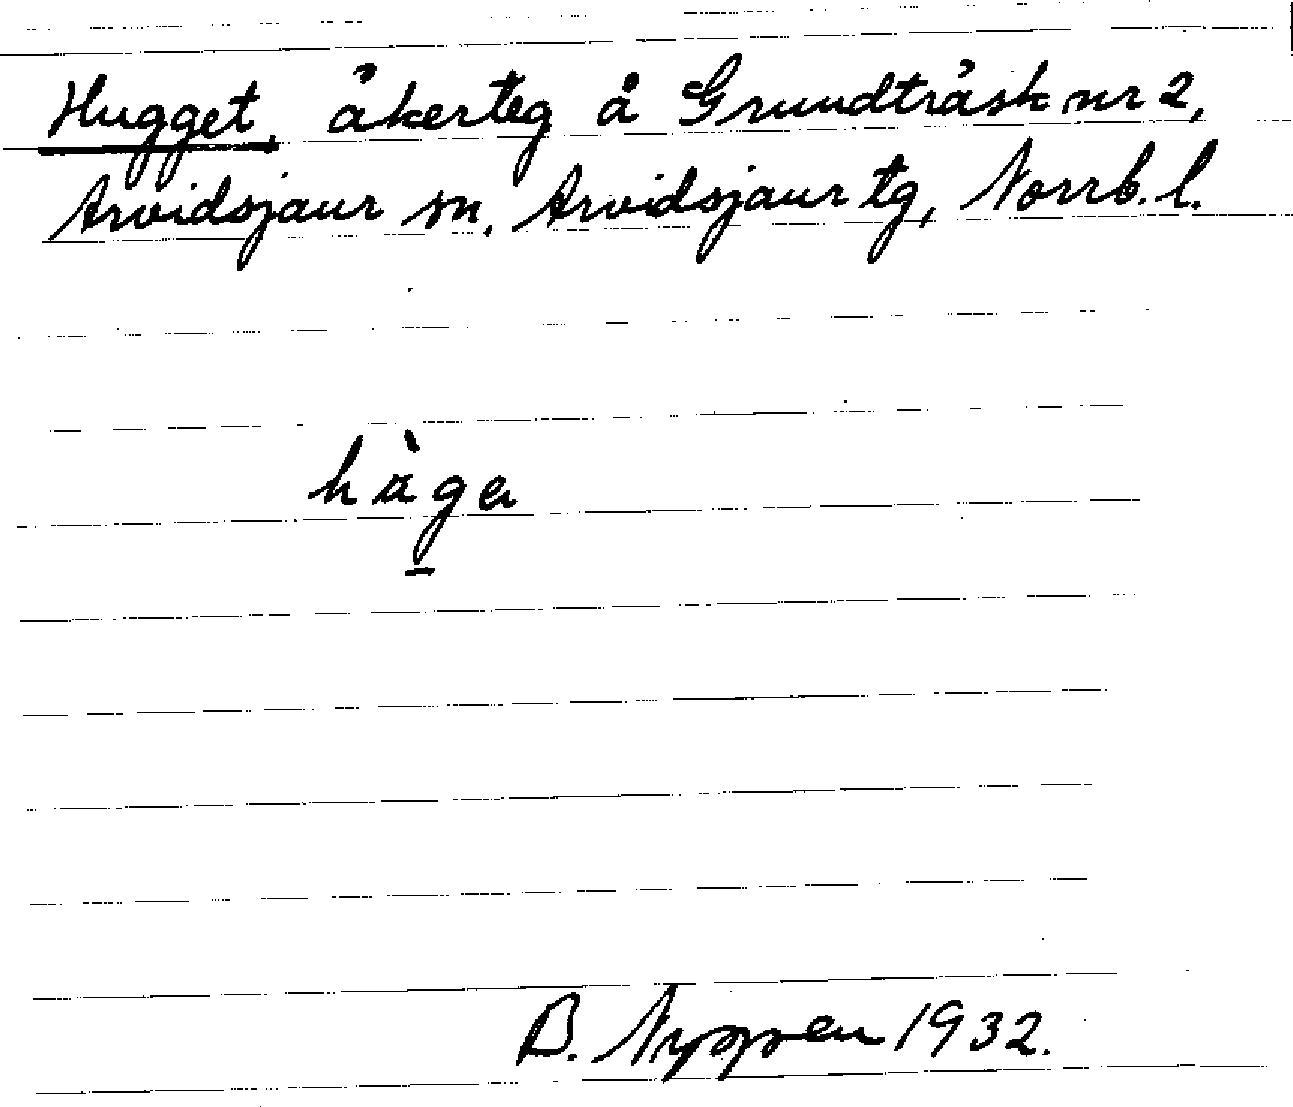 Hugget, åkerteg å Grundträsk nr 2,
Arvidsjaur sn, Arvidsjaur tg, Norrb. l.
B. Nygren 1932.